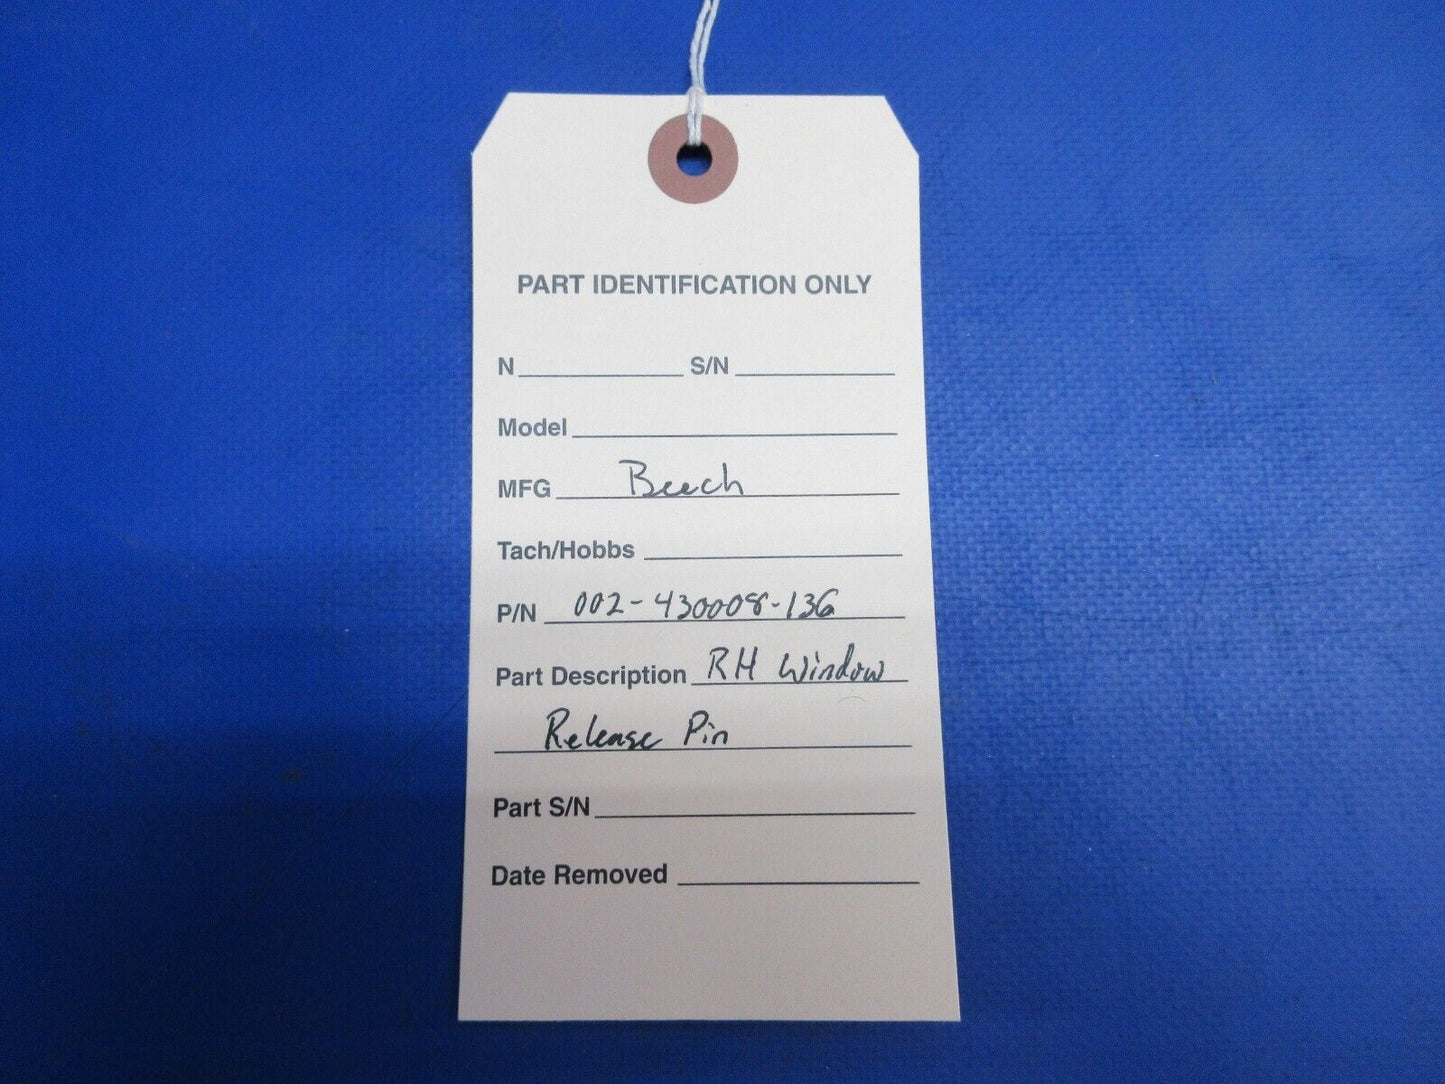 PART IDENTIFICATION ONLY
N S/N
Model
MFG Beech
Tach/Hobbs
P/N 002-430008-136
Part Description RH Window
Release Pin
Part S/N
Date Removed